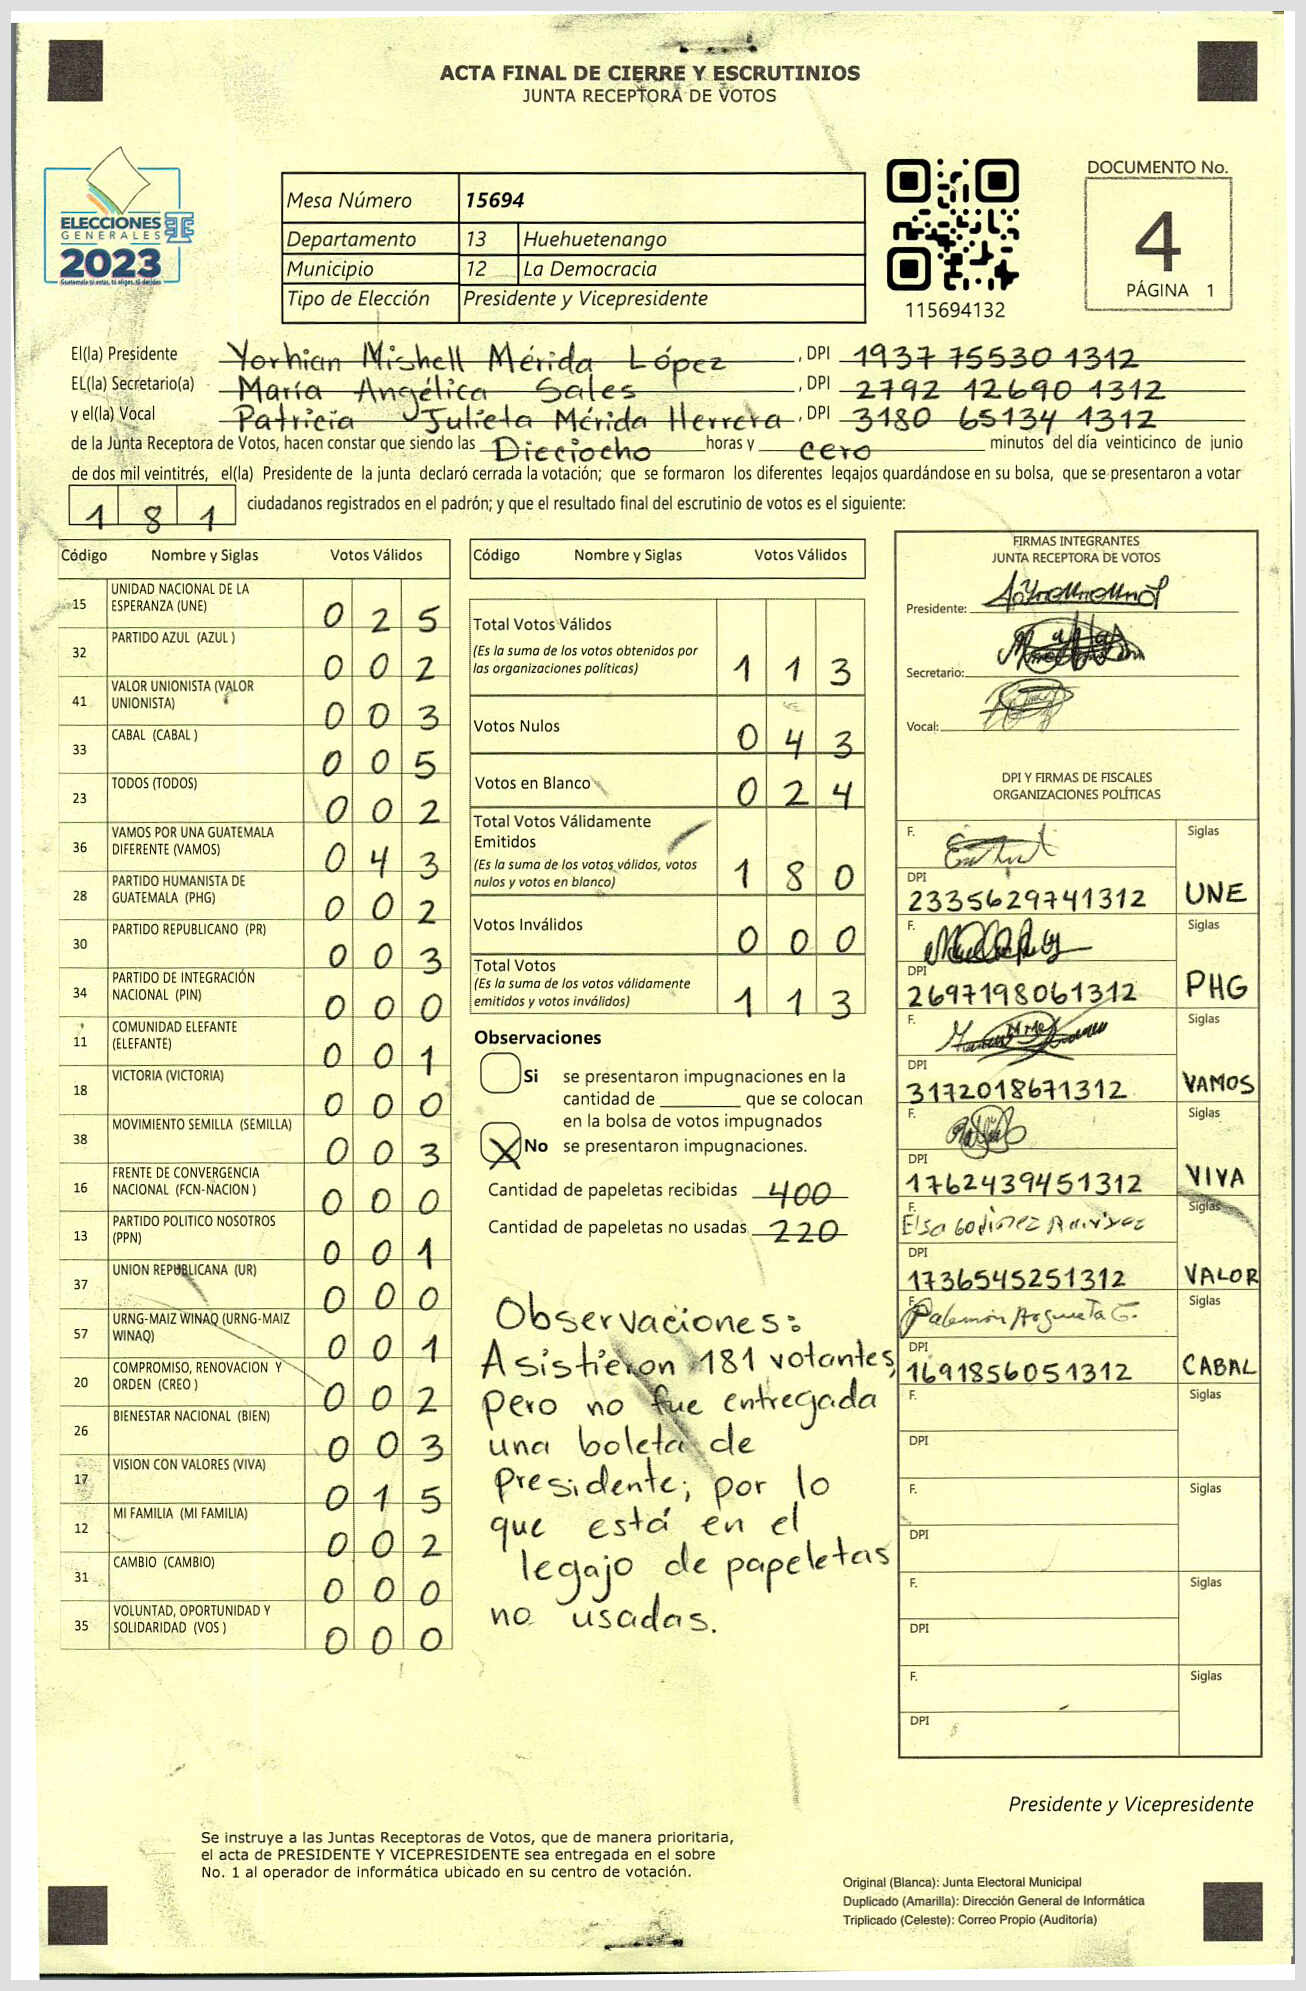 ACTA FINAL DE CIERRE Y ESCRUTINIOS
JUNTA RECEPTORA DE VOTOS
ELECCIONES
GENERALES
2023
Guatemala tú estás, tú eliges, tú decides
Mesa Número 15694
Departamento 13 Huehuetenango
Municipio 12 La Democracia
Tipo de Elección Presidente y Vicepresidente
115694132
DOCUMENTO No.
4
PÁGINA 1
El(la) Presidente Yorhian Mishell Mérida López, DPI 1937 75530 1312
EL(la) Secretario(a) María Angélica Sales, DPI 2792 12690 1312
y el(la) Vocal Patricia Julieta Mérida Herrera, DPI 3180 65134 1312
de la Junta Receptora de Votos, hacen constar que siendo las Dieciocho horas y cero minutos del día veinticinco de junio
de dos mil veintitrés, el(la) Presidente de la junta declaró cerrada la votación; que se formaron los diferentes legajos guardándose en su bolsa, que se presentaron a votar
181 ciudadanos registrados en el padrón; y que el resultado final del escrutinio de votos es el siguiente:
Código Nombre y Siglas Votos Válidos
15 UNIDAD NACIONAL DE LA ESPERANZA (UNE) 025
32 PARTIDO AZUL (AZUL ) 002
41 VALOR UNIONISTA (VALOR UNIONISTA) 003
33 CABAL (CABAL ) 005
23 TODOS (TODOS) 002
36 VAMOS POR UNA GUATEMALA DIFERENTE (VAMOS) 043
28 PARTIDO HUMANISTA DE GUATEMALA (PHG) 002
30 PARTIDO REPUBLICANO (PR) 003
34 PARTIDO DE INTEGRACIÓN NACIONAL (PIN) 000
11 COMUNIDAD ELEFANTE (ELEFANTE) 001
18 VICTORIA (VICTORIA) 000
38 MOVIMIENTO SEMILLA (SEMILLA) 003
16 FRENTE DE CONVERGENCIA NACIONAL (FCN-NACION ) 000
13 PARTIDO POLITICO NOSOTROS (PPN) 001
37 UNION REPUBLICANA (UR) 000
57 URNG-MAIZ WINAQ (URNG-MAIZ WINAQ) 001
20 COMPROMISO, RENOVACION Y ORDEN (CREO ) 002
26 BIENESTAR NACIONAL (BIEN) 003
17 VISION CON VALORES (VIVA) 015
12 MI FAMILIA (MI FAMILIA) 002
31 CAMBIO (CAMBIO) 000
35 VOLUNTAD, OPORTUNIDAD Y SOLIDARIDAD (VOS ) 000
Código Nombre y Siglas Votos Válidos
Total Votos Válidos
(Es la suma de los votos obtenidos por
las organizaciones políticas) 113
Votos Nulos 043
Votos en Blanco 024
Total Votos Válidamente
Emitidos
(Es la suma de los votos válidos, votos
nulos y votos en blanco) 180
Votos Inválidos 000
Total Votos
(Es la suma de los votos válidamente
emitidos y votos inválidos) 113
Observaciones
Si se presentaron impugnaciones en la
cantidad de ________ que se colocan
en la bolsa de votos impugnados
X No se presentaron impugnaciones.
Cantidad de papeletas recibidas 400
Cantidad de papeletas no usadas 220
Observaciones:
Asistieron 181 votantes,
pero no fue entregada
una boleta de
presidente; por lo
que está en el
legajo de papeletas
no usadas.
FIRMAS INTEGRANTES
JUNTA RECEPTORA DE VOTOS
Presidente:
Secretario:
Vocal:
DPI Y FIRMAS DE FISCALES
ORGANIZACIONES POLÍTICAS
F. Siglas
DPI
2335629741312 UNE
F. Siglas
DPI
2697198061312 PHG
F. Siglas
DPI
3172018671312 VAMOS
F. Siglas
DPI
1762439451312 VIVA
F. Elsa Siglas
DPI
1736545251312 VALOR
F. Palemón Argueta G. Siglas
DPI
1691856051312 CABAL
F. Siglas
DPI
F. Siglas
DPI
F. Siglas
DPI
F. Siglas
DPI
Presidente y Vicepresidente
Se instruye a las Juntas Receptoras de Votos, que de manera prioritaria,
el acta de PRESIDENTE Y VICEPRESIDENTE sea entregada en el sobre
No. 1 al operador de informática ubicado en su centro de votación.
Original (Blanca): Junta Electoral Municipal
Duplicado (Amarilla): Dirección General de Informática
Triplicado (Celeste): Correo Propio (Auditoría)